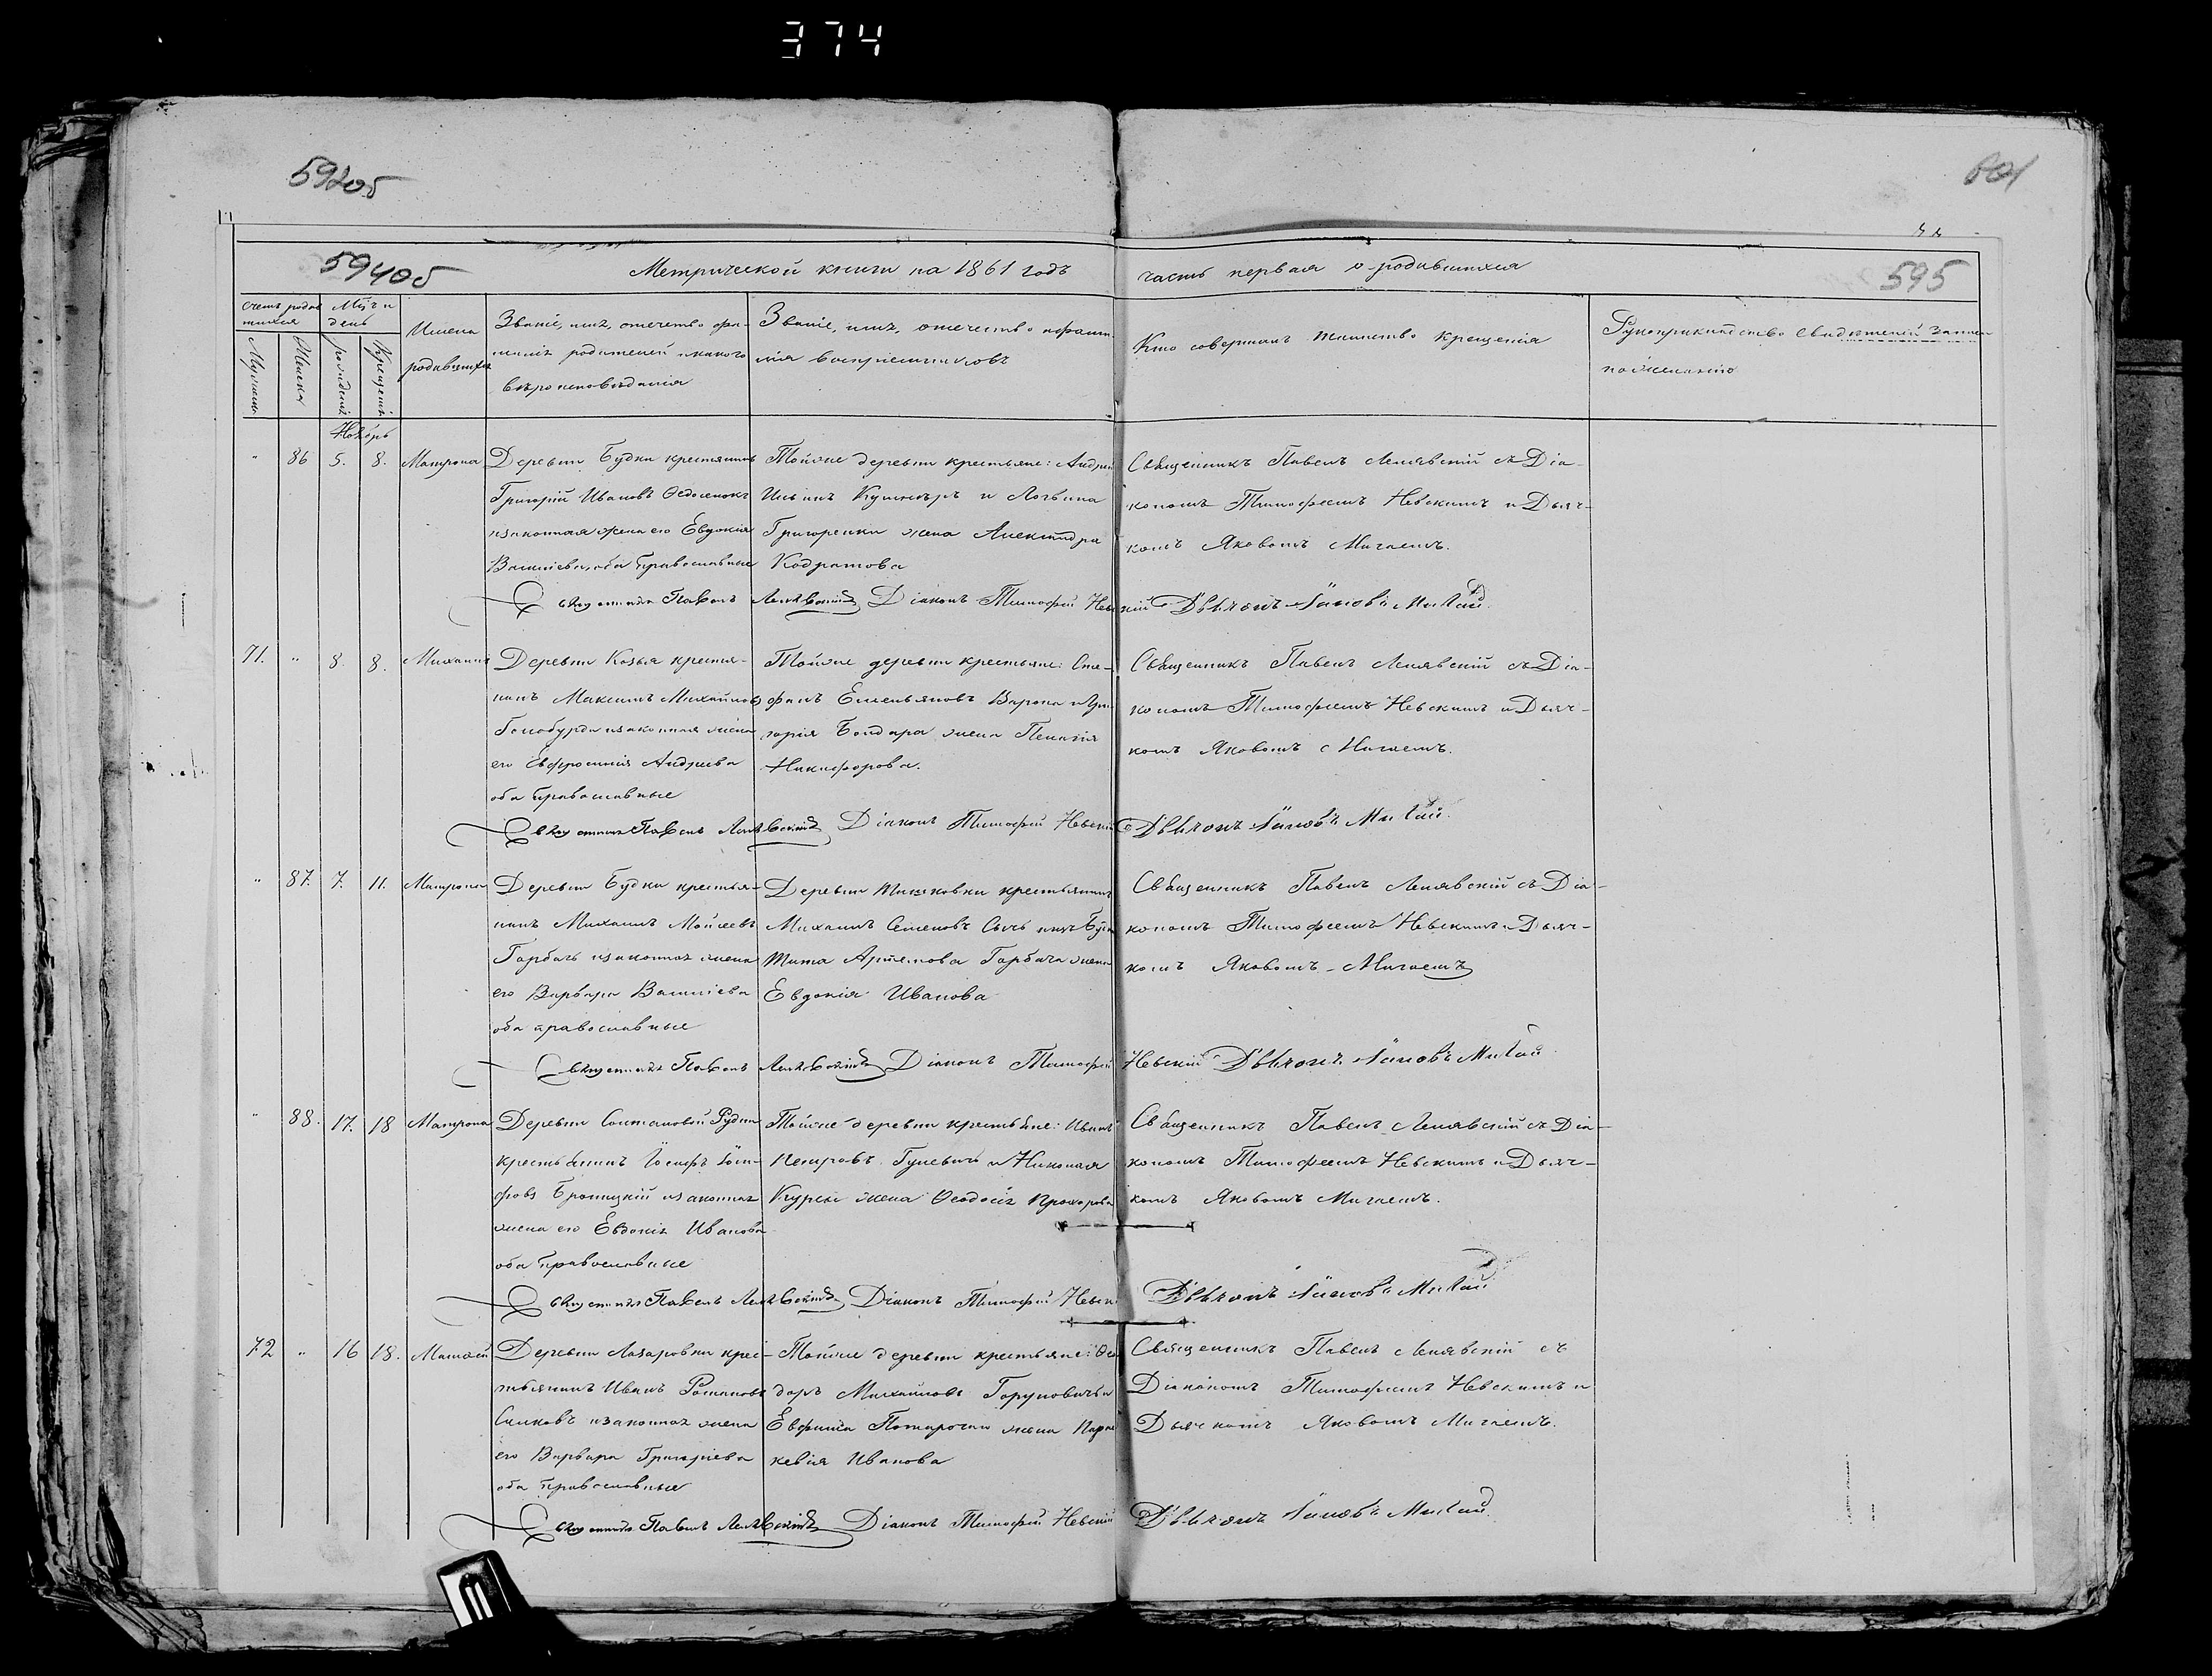 374
594об
601
594об
Метрической книги на 1861 годъ
часть первая о родившихся
595
Счетъ родив
шихся
Мужеска
Женска
Мцъ и
день
рожденія
крещенія
Имена
родившихся
Званіе, имя, отечество фа-
милія родителей и какого
вѣроисповѣданія
Званіе, имя, отечество и фами-
лія воспріемниковъ
Кто совершалъ таинство крещенія
Рукоприкладство свидѣтелей записи
по желанію
Ноябрь
" 86 5. 8. Матрона
Деревни Будки крестянинъ
Григорій Ивановъ Ѳедосенокъ
и законная жена его Евдокія
Василіева, оба Православные
Тойже деревни крестьяне: Андрей
Ильинъ Кушнѣръ и Логвина
Григоренки жена Александра
Кодратова
Священникъ Павелъ Лелявскій съ Діа-
кономъ Тимофеемъ Невскимъ и Дьяч-
комъ Яковомъ Мигаемъ.
Священникъ Павелъ Лелявскій Діаконъ Тимофей Невскій Дьячокъ Яковъ Мигай.
71. " 8. 8. Михаилъ
Деревни Козья крестья-
нинъ Максимъ Михайловъ
Голобурда и законная жена
его Евфросинія Андреева
оба Православные
Тойже деревни крестьяне: Сте-
фанъ Емельяновъ Ворона и Гри-
горія Бондара жена Пелагія
Никифорова.
Священникъ Павелъ Лелявскій съ Діа-
кономъ Тимофеемъ Невскимъ и Дьяч-
комъ Яковомъ Мигаемъ.
Священникъ Павелъ Лелявскій Діаконъ Тимофей Невскій Дьячокъ Яковъ Мигай.
" 87. 7. 11. Матрона
Деревни Будки крестья-
нинъ Михаилъ Моисеевъ
Горбачъ и законная жена
его Варвара Василіева
оба православные
Деревни Тишковки крестьянинъ
Михаилъ Семеновъ Сычъ
Тита Артемова Горбача жена
Евдокія Иванова
Священникъ Павелъ Лелявскій съ Діа-
кономъ Тимофеемъ Невскимъ и Дьяч-
комъ Яковомъ Мигаемъ
Священникъ Павелъ Лелявскій Діаконъ Тимофей Невскій Дьячокъ Яковъ Мигай
" 88. 17. 18 Матрона
Деревни Солтановой Рудни
крестьянинъ Іосифъ Іоси-
фовъБроницкій и законная
жена его Евдокія Иванова
оба Православные
Тойже деревни крестьяне: Иванъ
Петровъ Гулевичъ и Николая
Курсы жена Ѳеодосія Прохорова
Священникъ Павелъ Лелявскій съ Діа-
кономъ Тимофеемъ Невскимъ и Дьяч-
комъ Яковомъ Мигаемъ.
Священникъ Павелъ Лелявскій Діаконъ Тимофей Невск Дьячокъ Яковъ Мигай
72 " 16 18. Матѳей
Деревни Лазаровки крес-
тьянинъ Иванъ Романовъ
Силковъ и законная жена
его Варвара Григоріева
оба православные
Тойже деревни крестьяне: Ѳео
доръ Михайловъ Горуновичъ и
Евфимія Потирочки жена Парас
кевія Иванова
Священникъ Павелъ Лелявскій съ
Діакономъ Тимофеемъ Невскимъ и
Дьячкомъ Яковомъ Мигаемъ.
Священникъ Павелъ Лелявскій Діаконъ Тимофей Невскій Дьячокъ Яковъ Мигай.